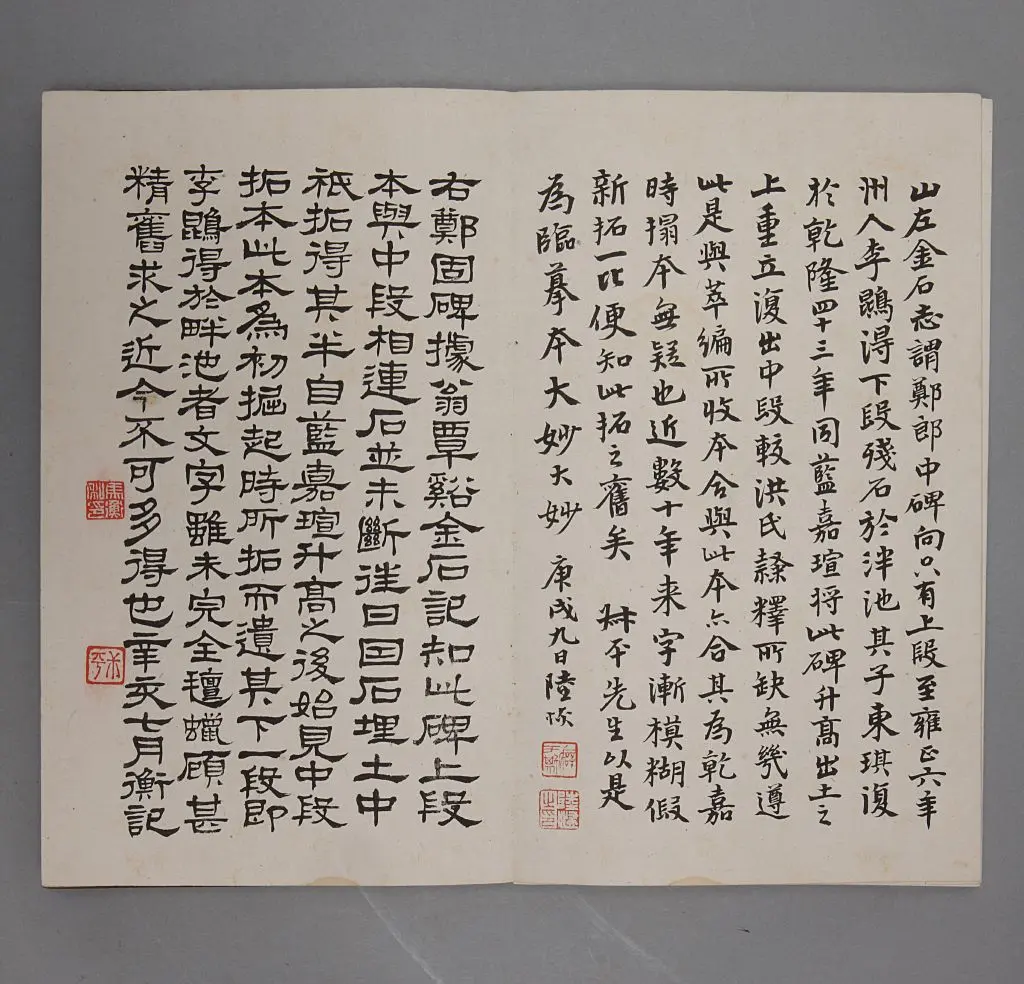 山左金石志謂鄭郎中碑向只有上段至雍正六年
州人李鵾得下段殘石於泮池其子東琪復
於乾隆四十三年同藍嘉瑄將此碑升高出土之
上重立復出中段較洪氏隸釋所缺無幾遵
此是與萃編所收本合與此本亦合其為乾嘉
時搨本無疑也近數十年来字漸模糊假
新拓一比便知此拓之舊矣 尗平先生以是
為臨摹本大妙大妙 庚戌九日陸恢
右鄭固碑據翁覃谿金石記知此碑上段
本與中段相連石並未斷從曰因石埋土中
祇拓得其半自藍嘉瑄升高之後始見中段
拓本此本為初掘起時所拓而遺其下一段即
李鵾得於泮池者文字雖未完全氊蠟頗甚
精舊求之近今不可多得也辛亥七月衡記